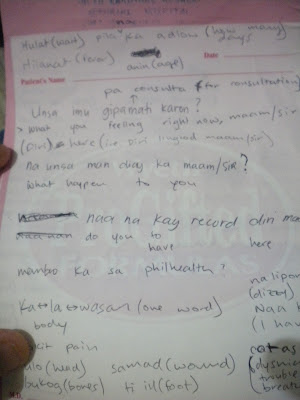 Hulat (wait) pila ka adlaw (how many days
Hilanat (fever)
anio (age)
Date
Patient's Name
pa consulta (for consultation)
Unsa imu gipamati karon?
> what you feeling right now, maam/sir
(Diri) here (i.e. Diri lingkod maam/sir)
na unsa man diay ka maam/sir?
What happen to you
naa na kay record diri ma
do you so have here
membro ka sa philhealth?
na lipo
Ka↔la↔wasan (one word)
(dizzy
body
Naa k
(I hav
pain
ulo (head) samad (wound)
(dysme
trouble
bukog (bones) ti il (foot)
breath